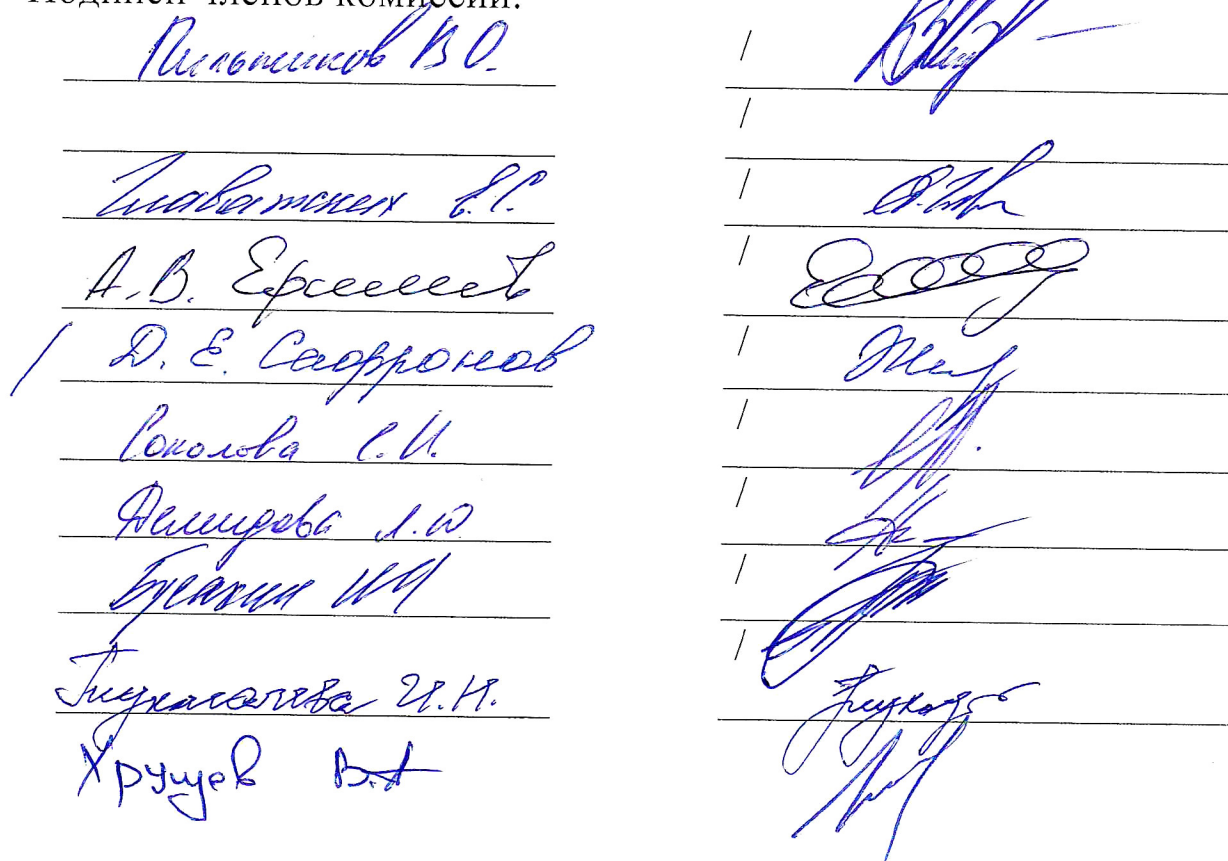 Подписи членов комиссии:
Пильщиков В О. /
/
Главатских Е.С. /
А.В. Ефимов /
/ Д. Е. Сафронов /
Соколова С.И. /
Демидова Л.Ю /
Бусахин ИИ /
И.Н.
Хрущев В.А